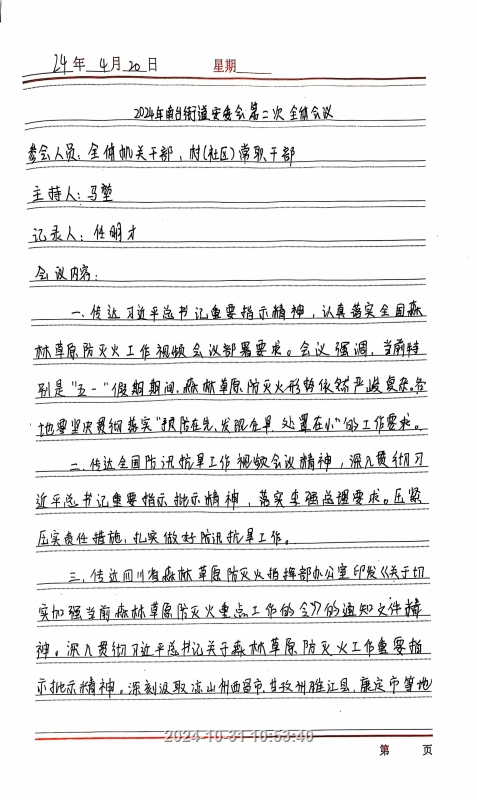 24年 4月20日 星期
2024年南台街道安委会第二次全体会议
参会人员：全体机关干部，村（社区）常职干部
主持人：马堃
记录人：任明才
会议内容：
一、传达习近平总书记重要指示精神，认真落实全国森
林草原防灭火工作视频会议部署要求。会议强调，当前特
别是"五一"假期期间，森林草原防灭火形势依然严峻复杂。各
地要坚决贯彻落实"预防在先，发现在早，处置在小"的工作要求。
二、传达全国防汛抗旱工作视频会议精神，深入贯彻习
近平总书记重要指示批示精神，落实李强总理要求。压紧
压实责任措施，扎实做好防汛抗旱工作。
三、传达四川省森林草原防灭火指挥部办公室印发《关于切
实加强当前森林草原防灭火重点工作的令》的通知文件精
神。深入贯彻习近平总书记关于森林草原防灭火工作重要指
示批示精神。深刻汲取凉山州西昌市，甘孜州雅江县，康定市等地
2024-10-31 10:53:40
第 页